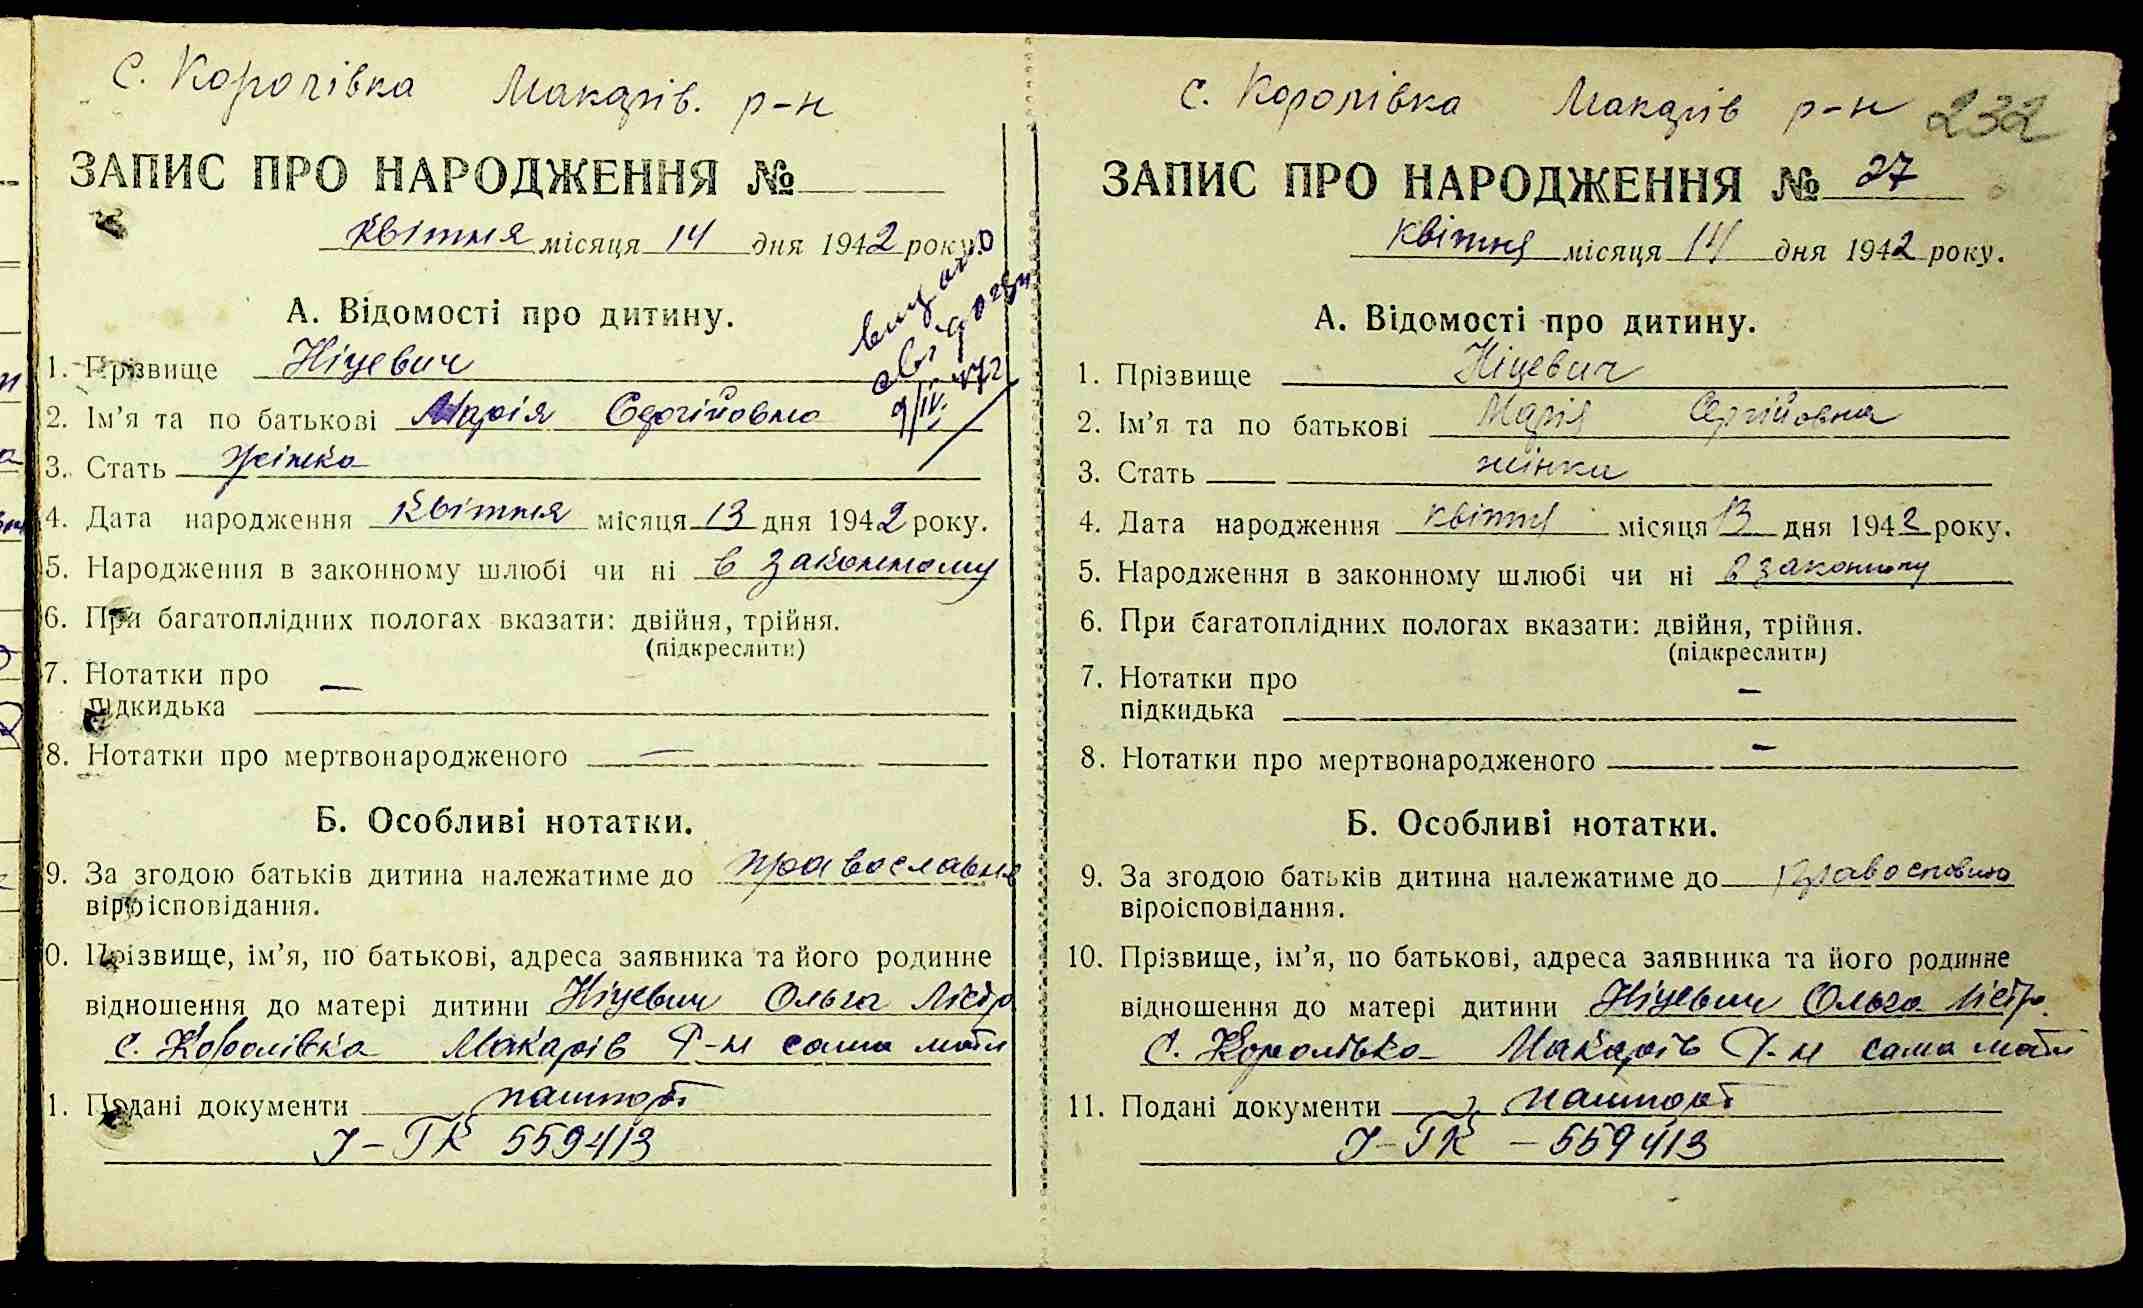 с. Королівка Макарів. р-н
ЗАПИС ПРО НАРОДЖЕННЯ №
квітня місяця 14 дня 1942 року.
А. Відомості про дитину.
1. Прізвище Ніцевич
2. Ім'я та по батькові Марія Сергійовна
3. Стать жінка
4. Дата народження квітня місяця 13 дня 1942 року.
5. Народження в законному шлюбі чи ні в законному
6. При багатоплідних пологах вказати: двійня, трійня.
(підкреслити)
7. Нотатки про
підкидька —
8. Нотатки про мертвонародженого —
Б. Особливі нотатки.
9. За згодою батьків дитина належатиме до православне
віроісповідання.
0. Прізвище, ім'я, по батькові, адреса заявника та його родинне
відношення до матері дитини Ніцевич Ольга
с. Королівка Макарів р-н сама мати
1. Подані документи пашпорт
І-ГК 559413
с. Королівка Макарів р-н 232
ЗАПИС ПРО НАРОДЖЕННЯ № 27
квітня місяця 14 дня 1942 року.
А. Відомості про дитину.
1. Прізвище Ніцевич
2. Ім'я та по батькові Марія Сергійовна
3. Стать жінка
4. Дата народження квітня місяця 13 дня 1942 року.
5. Народження в законному шлюбі чи ні в законному
6. При багатоплідних пологах вказати: двійня, трійня.
(підкреслити)
7. Нотатки про
підкидька —
8. Нотатки про мертвонародженого —
Б. Особливі нотатки.
9. За згодою батьків дитина належатиме до
віроісповідання.
10. Прізвище, ім'я, по батькові, адреса заявника та його родинне
відношення до матері дитини Ніцевич Ольга
с. Королівка Макарів р-н сама мати
11. Подані документи пашпорт
І-ГК – 559413